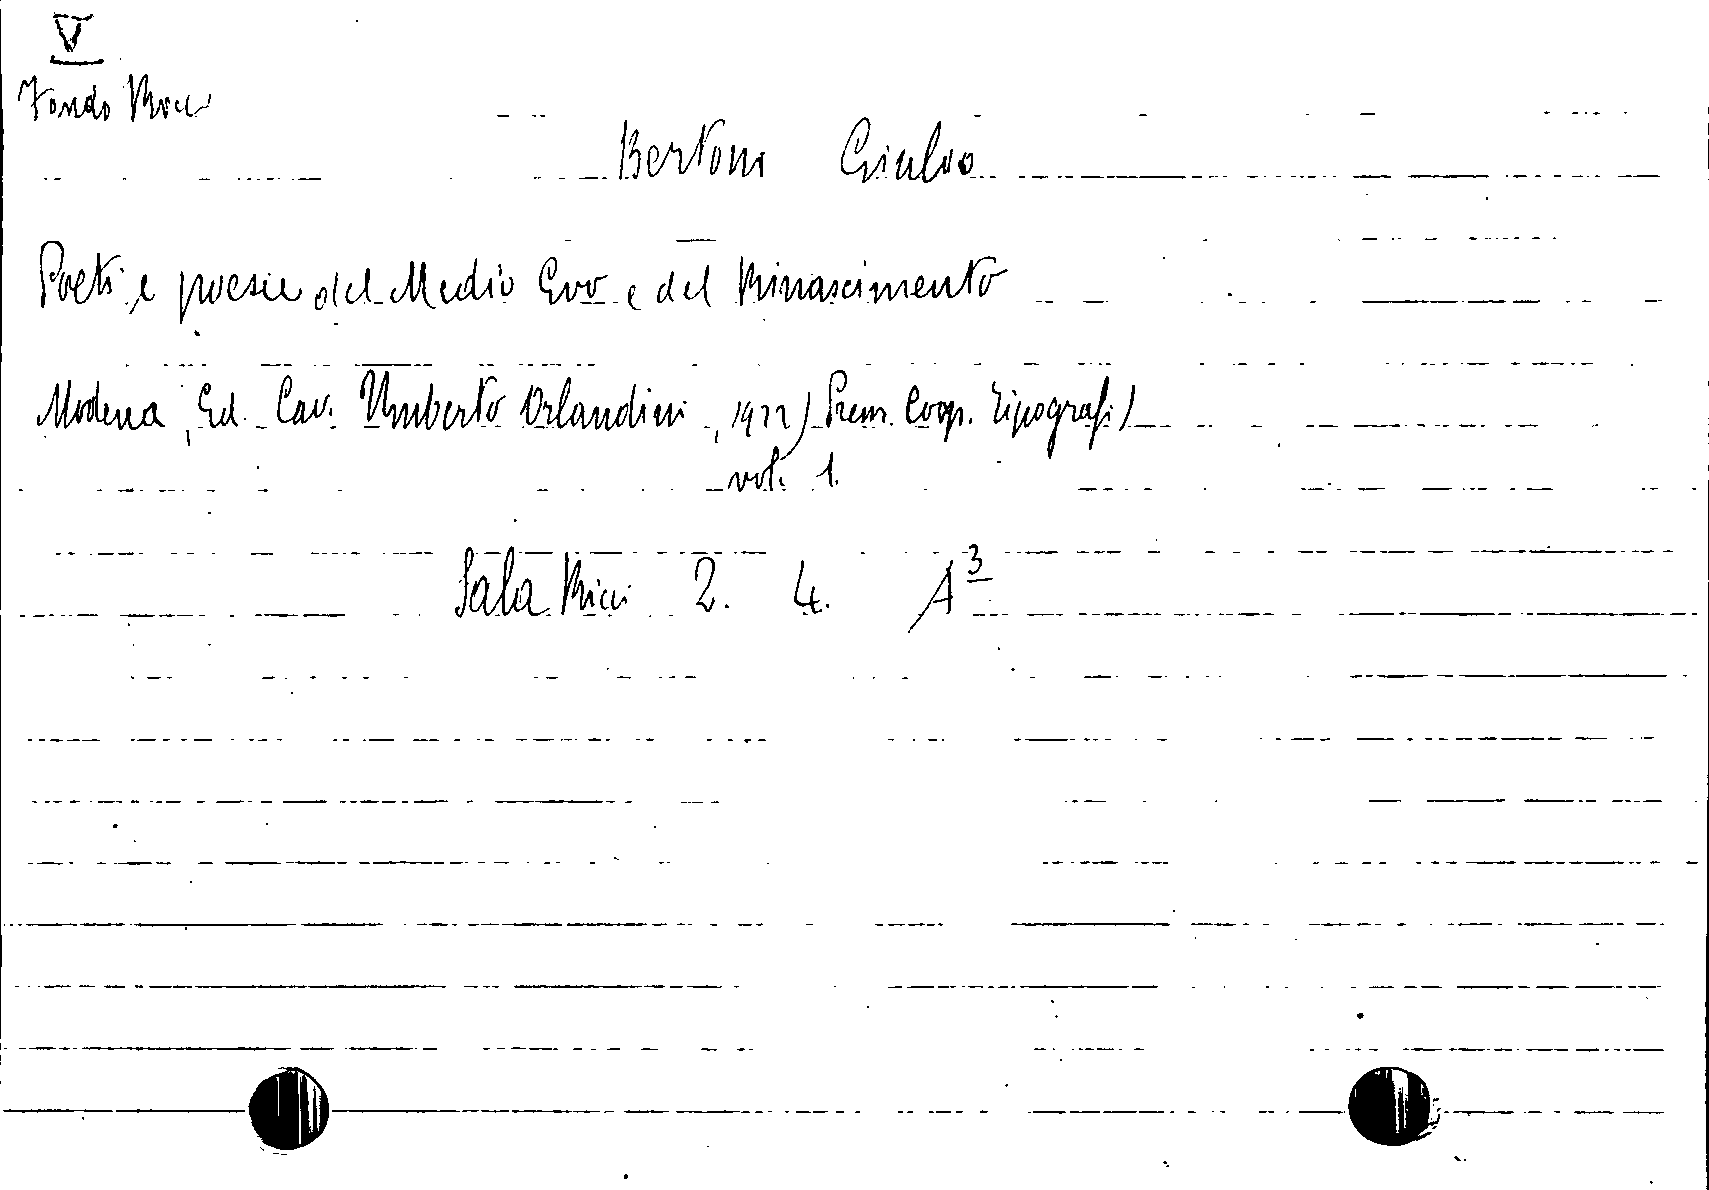 V
Fondo Ricci
Bertoni Giulio
Poeti e poesie del Medio Evo e del Rinascimento
Modena, Ed. Cav. Umberto Orlandini, 1922 (Prem. Coop. Tipografi)
vol. 1.
Sala Ricci 2. 4. A³